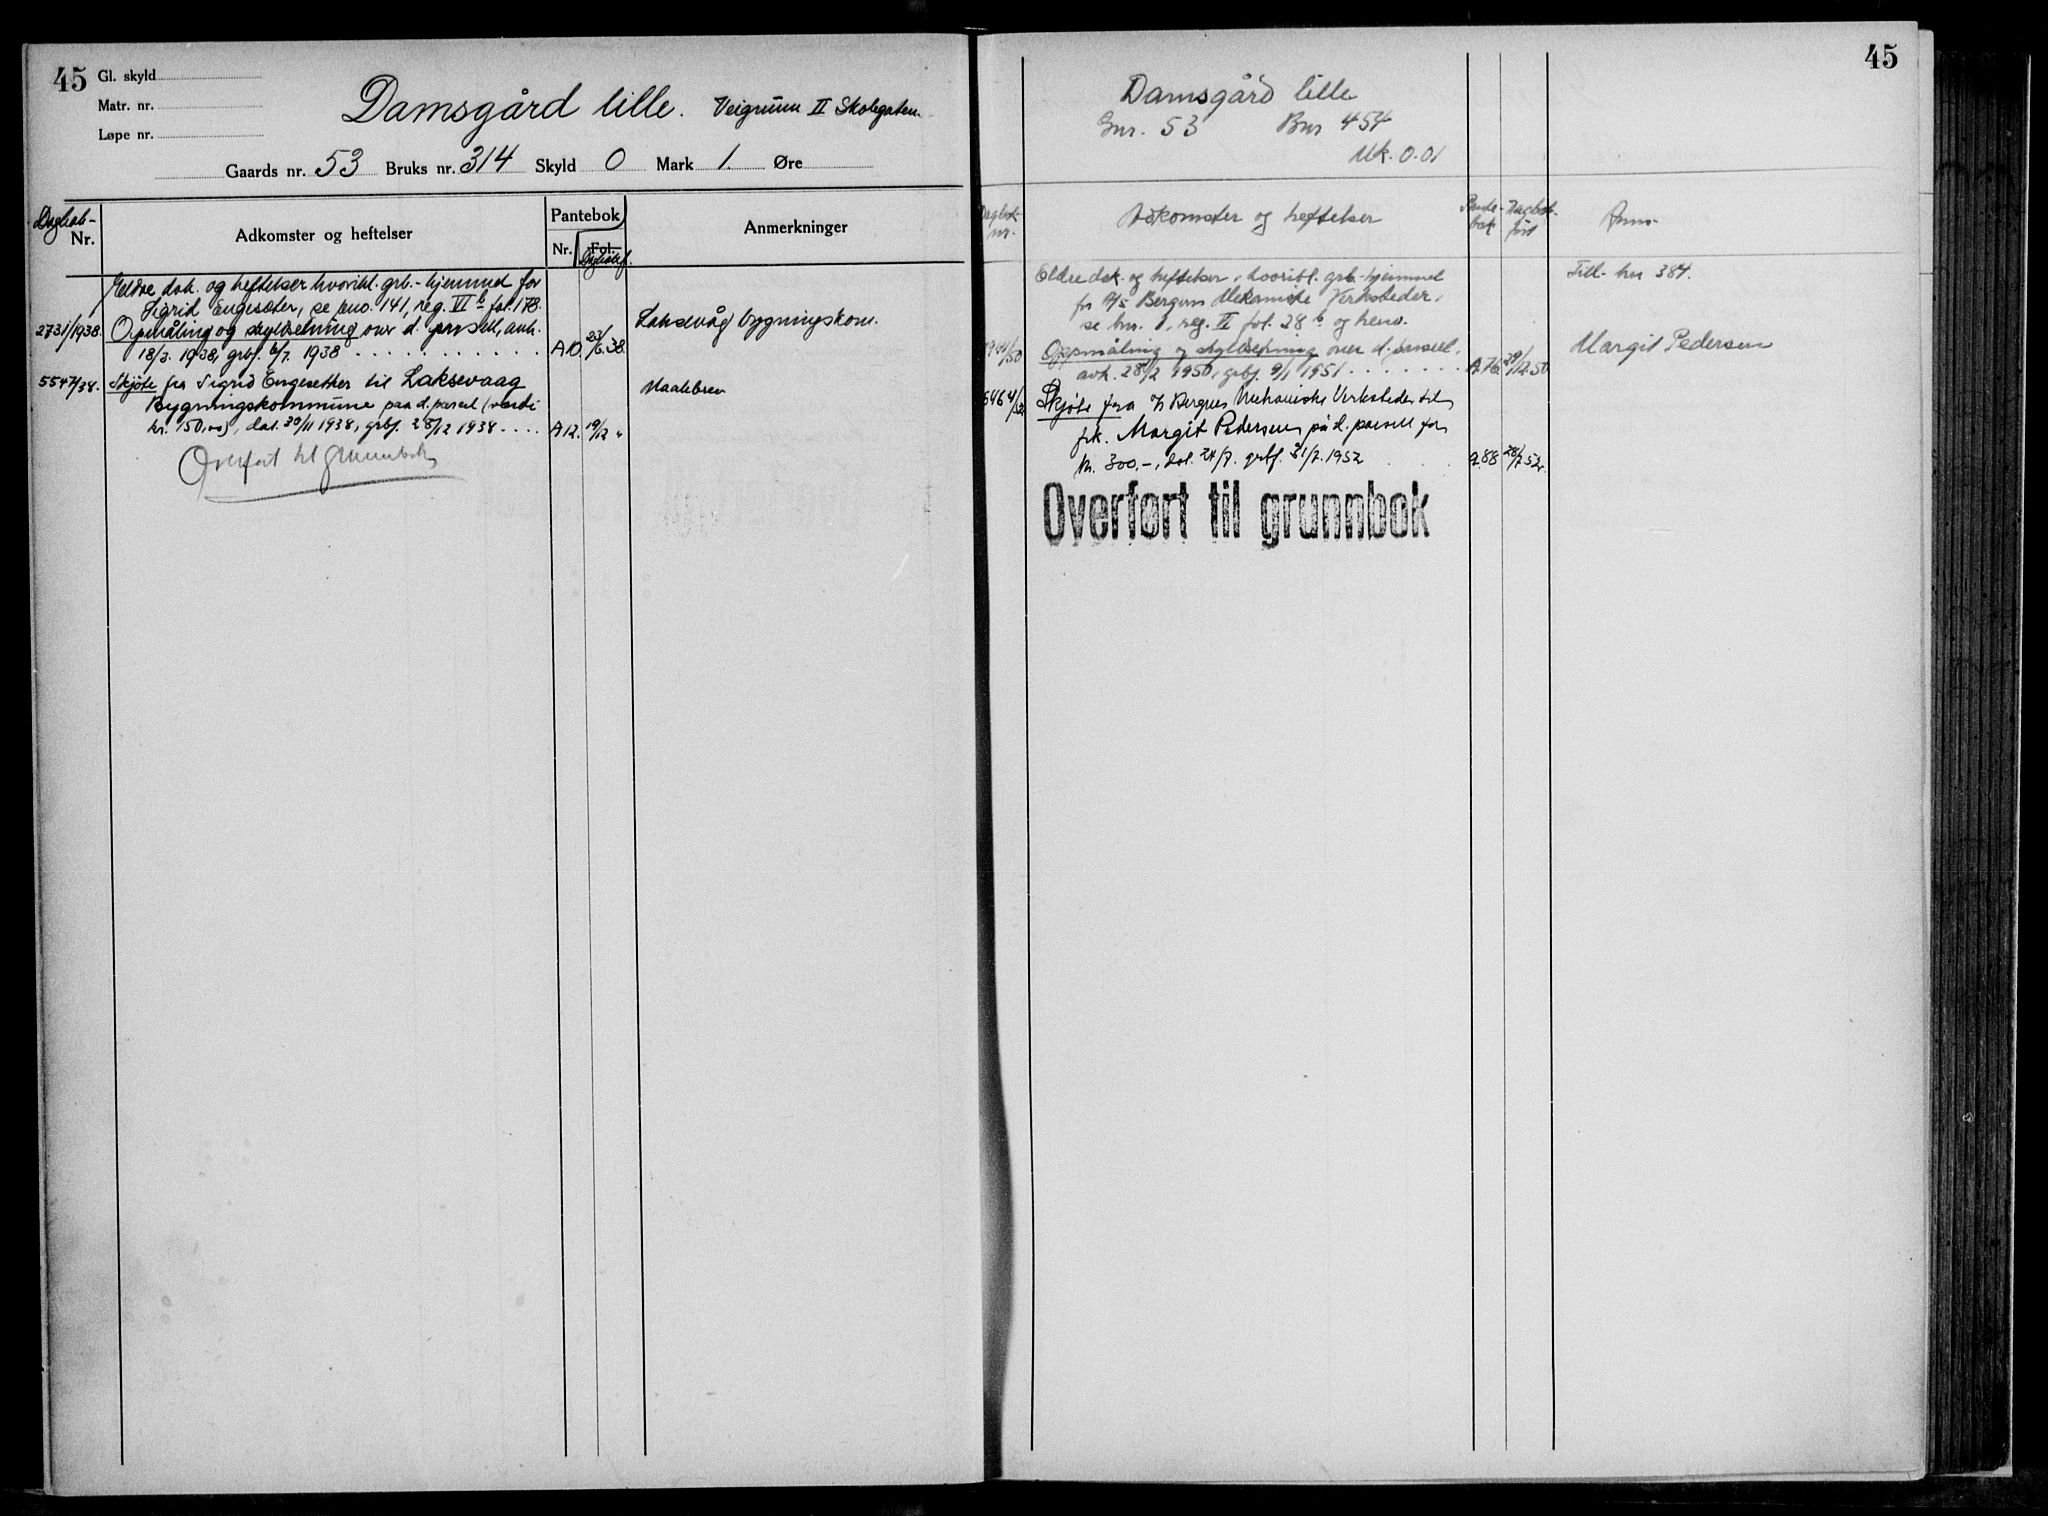 45
Gl. skyld
Matr. nr.
Løpe nr.
Damsgård lille. Veigrunn II Skolegaten.
Gaards nr. 53 Bruks nr. 314 Skyld 0 Mark 1. Øre
Dagbok-
Nr.
Adkomster og heftelser
Pantebok
Nr. Fol.
Dagbokf.
Anmerkninger
Eldre dok. og heftelser hvoribl. grb.-hjemmel for
Sigrid Engesæter, se bno. 141, reg. VI b fol. 178.
2731/1938. Opmåling og skyldseting over d. parsell, avh.
18/3. 1938, grbf. 6/7. 1938 . . . . . . . . . . . . A10. 23/6.38.
Laksevåg bygningskom.
5547/38. Skjøte fra Sigrid Engesether til Laksevaag
Bygningskommune paa d. parsel (værdi
kr. 150,00), dat. 30/11 1938, grbf. 28/12 1938 . . . . A12. 19/12 "
Maalebrev
Overført til grunnbok
45
Damsgård lille
Gnr. 53 Bnr 454
Mk. 0.01
Dagbok
nr.
Adkomster og heftelser
Pante-
bok
Dagbok-
ført
Anm.
Eldre dok. og heftelser, hvoribl. grb.-hjemmel
for A/S Bergens Mekaniske Verksteder,
se bnr. 1, reg. VI fol. 28 b og henv.
Till. bnr 384.
/50 Oppmåling og skyldseting over d. parsell,
avh. 28/2 1950, grbf. 9/1 1951 . . . . . . . A.76. 29/12.50
Margit Pedersen
5464/52 Skjøte fra A/S Bergens Mekaniske Verksteder til
frk. Margit Pedersen på d. parsell for
kr. 300.-, dat. 24/7. grbf. 31/7. 1952 . . . A.88 28/7.52.
Overført til grunnbok